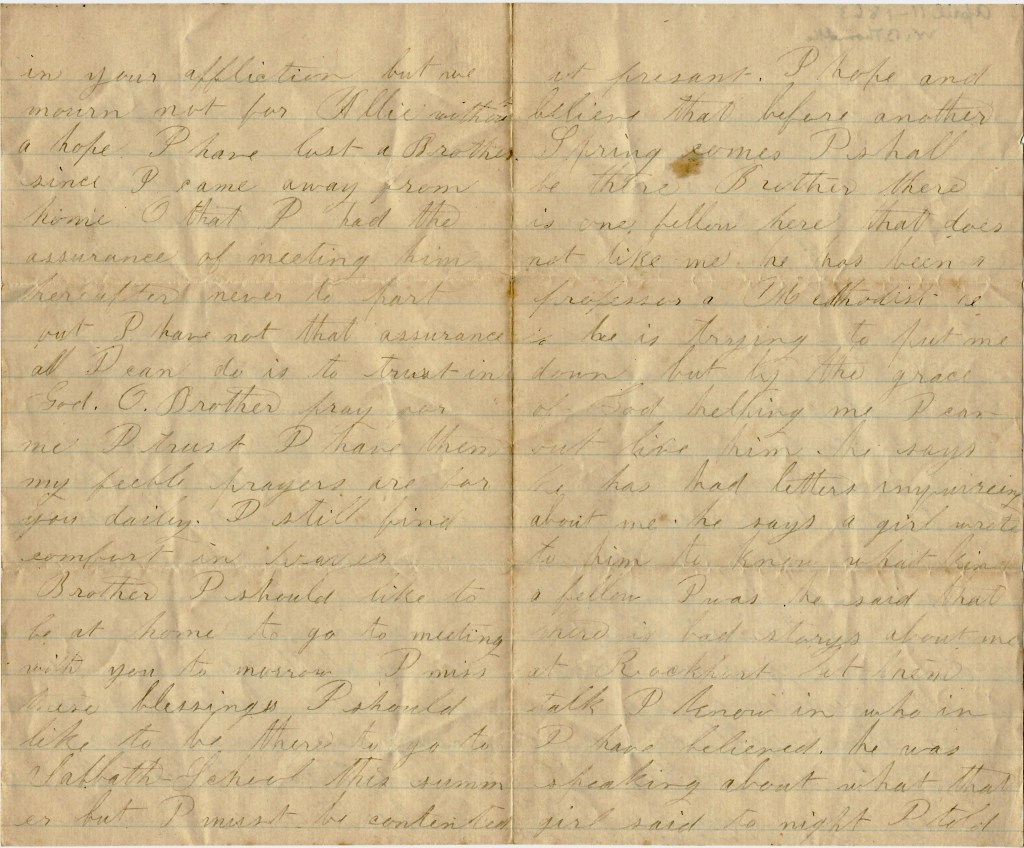 in your affliction but we
mourn not for Allie without
a hope. I have lost a Brother.
since I came away from
home O that I had the
assurance of meeting him
hereafter never to part
but I have not that assurance
all I can do is to trust in
God. O. Brother pray for
me I trust I have them
my feeble prayers are for
you dailey. I still find
comfort in prayer
Brother I should like to
be at home to go to meeting
with you to morrow I miss
these blessings I should
like to be there to go to
Sabbath-School this summ
er but I musst be contented
at presant. I hope and
believe that before another
Spring comes I shall
be there Brother there
is one fellow here that does
not like me. he has been a
professor a Methodist he
is he is trysing to put me
down but by the grace
of God helping me I can
out live him. he says
he has had letters inquireing
about me. he says a girl wrote
to him to know what kind
a fellow I was he said that
there is bad storys about me
at Rockport let them
talk I know in who in
I have believed. he was
speaking about what that
girl said to night I told